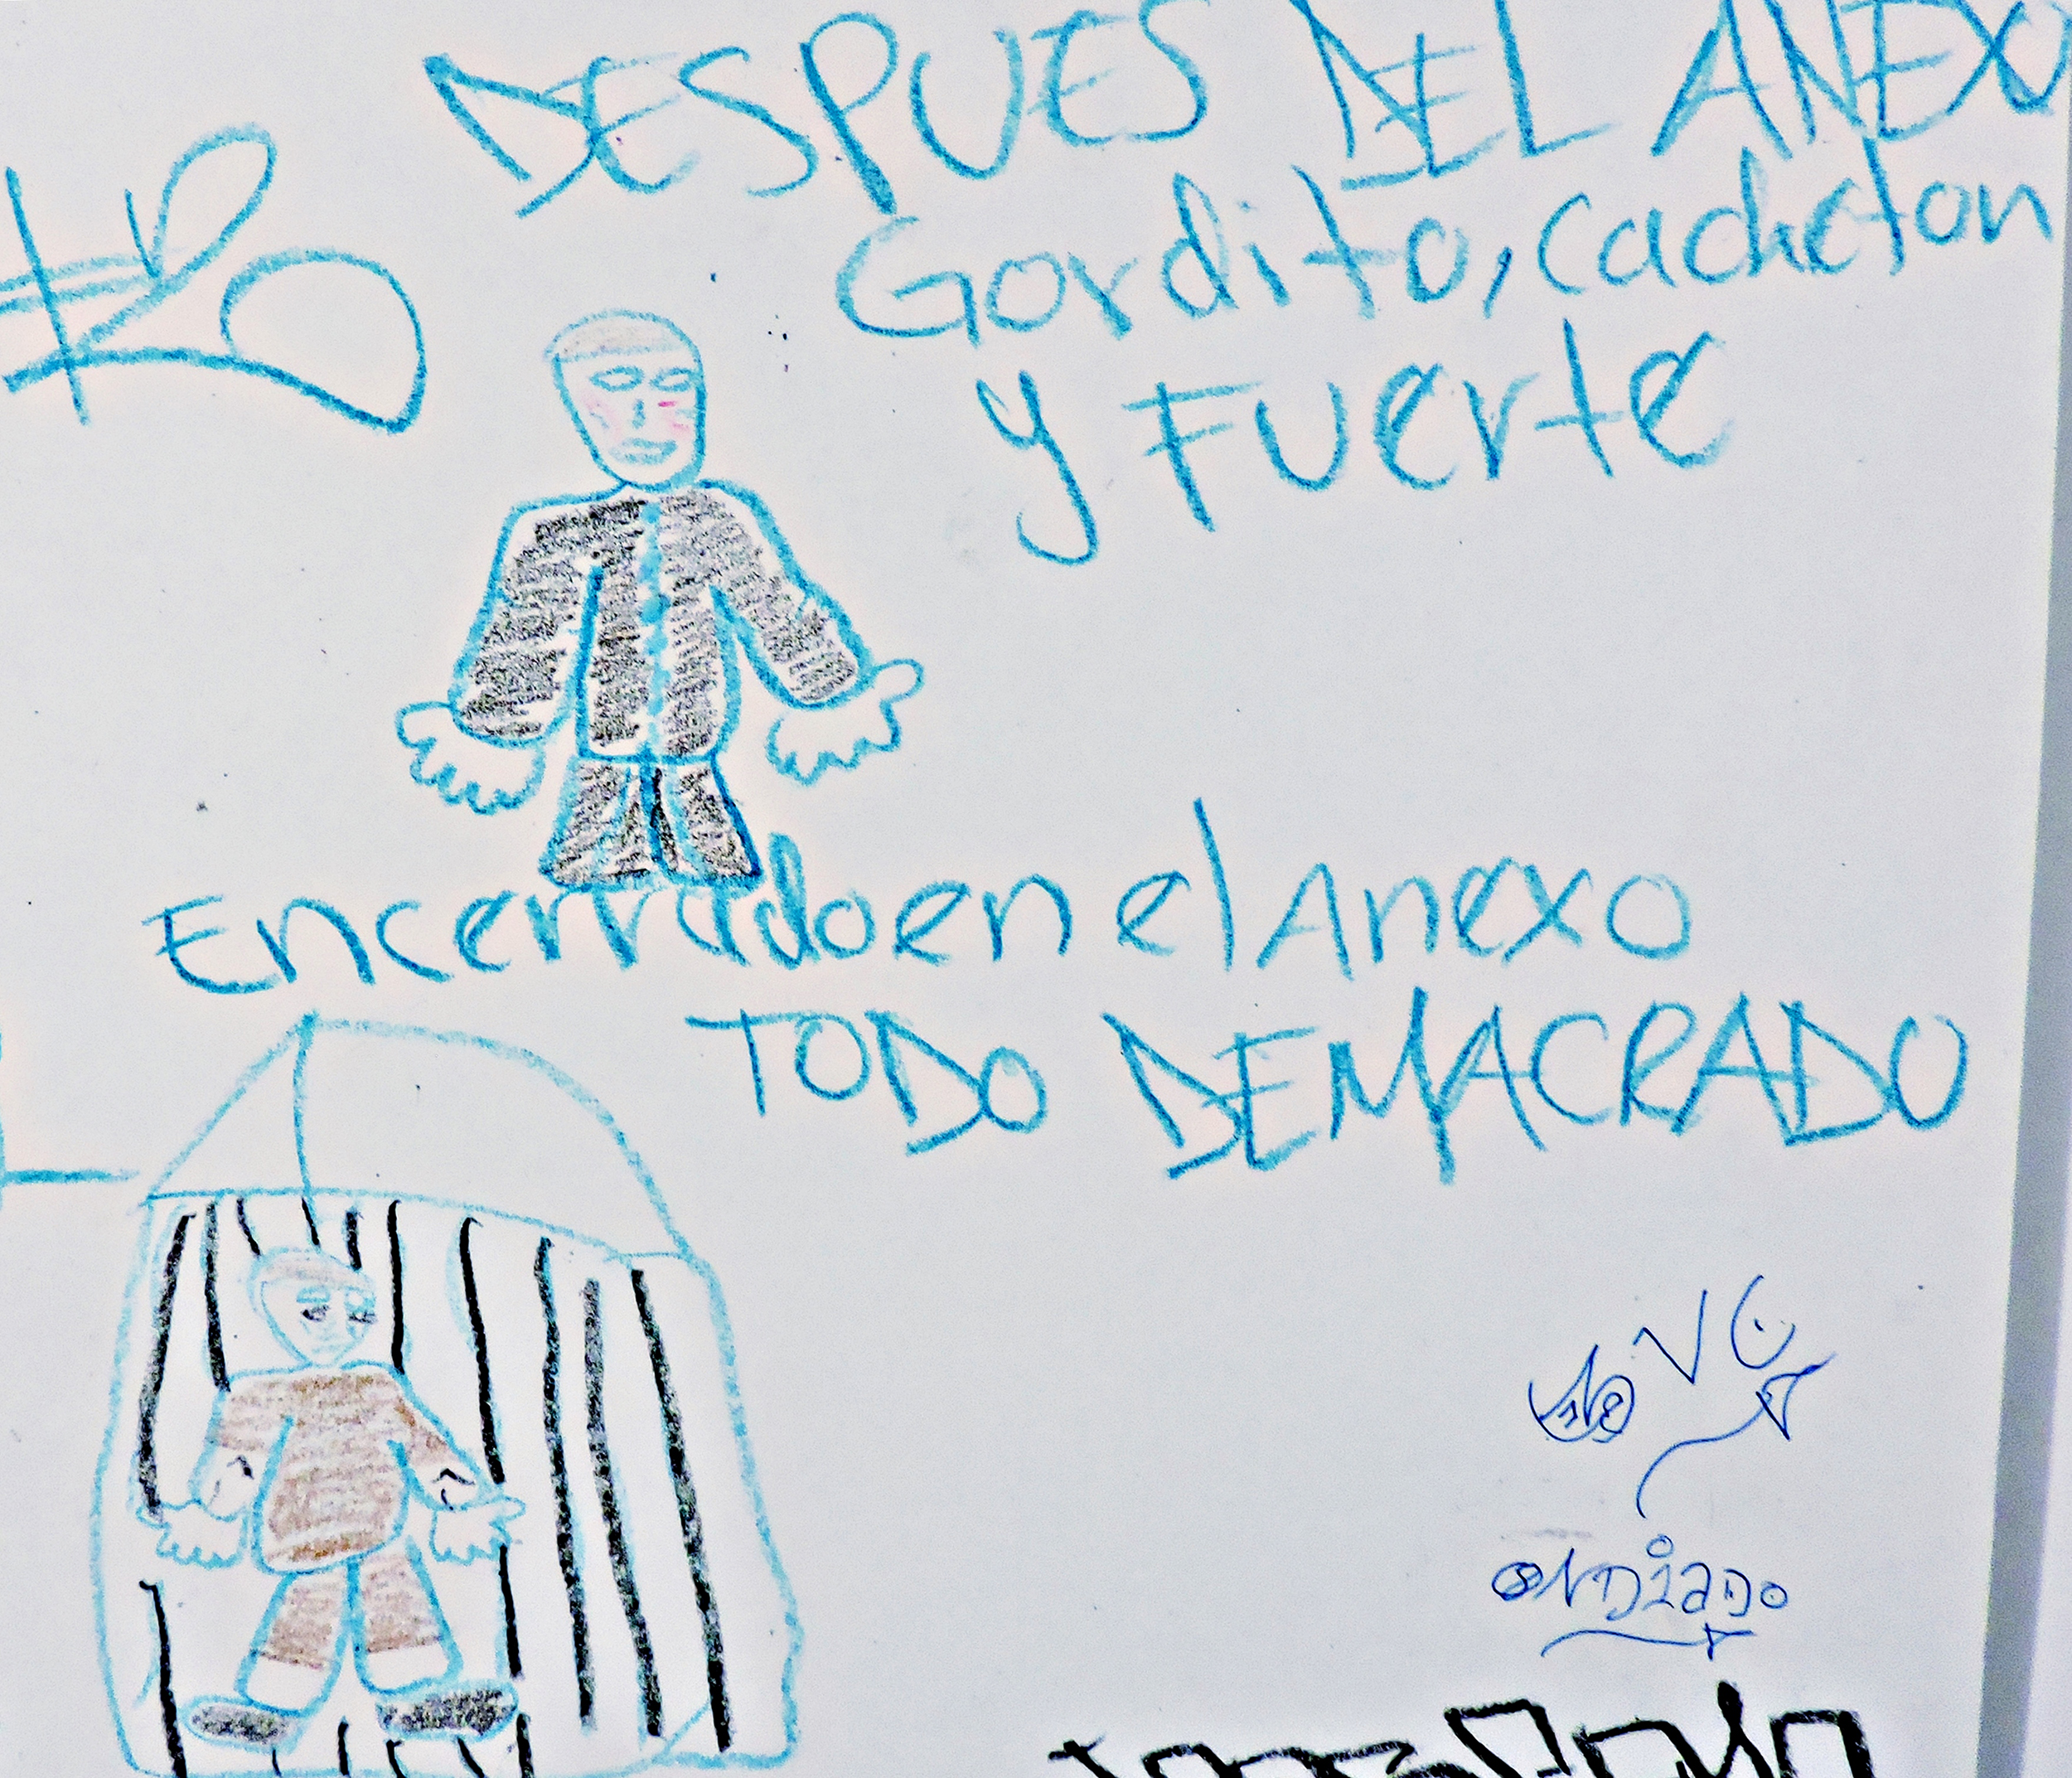 DESPUES DEL ANEXO
Gordito, cacheton
y Fuerte
Encerrado en el Anexo
TODO DEMACRADO